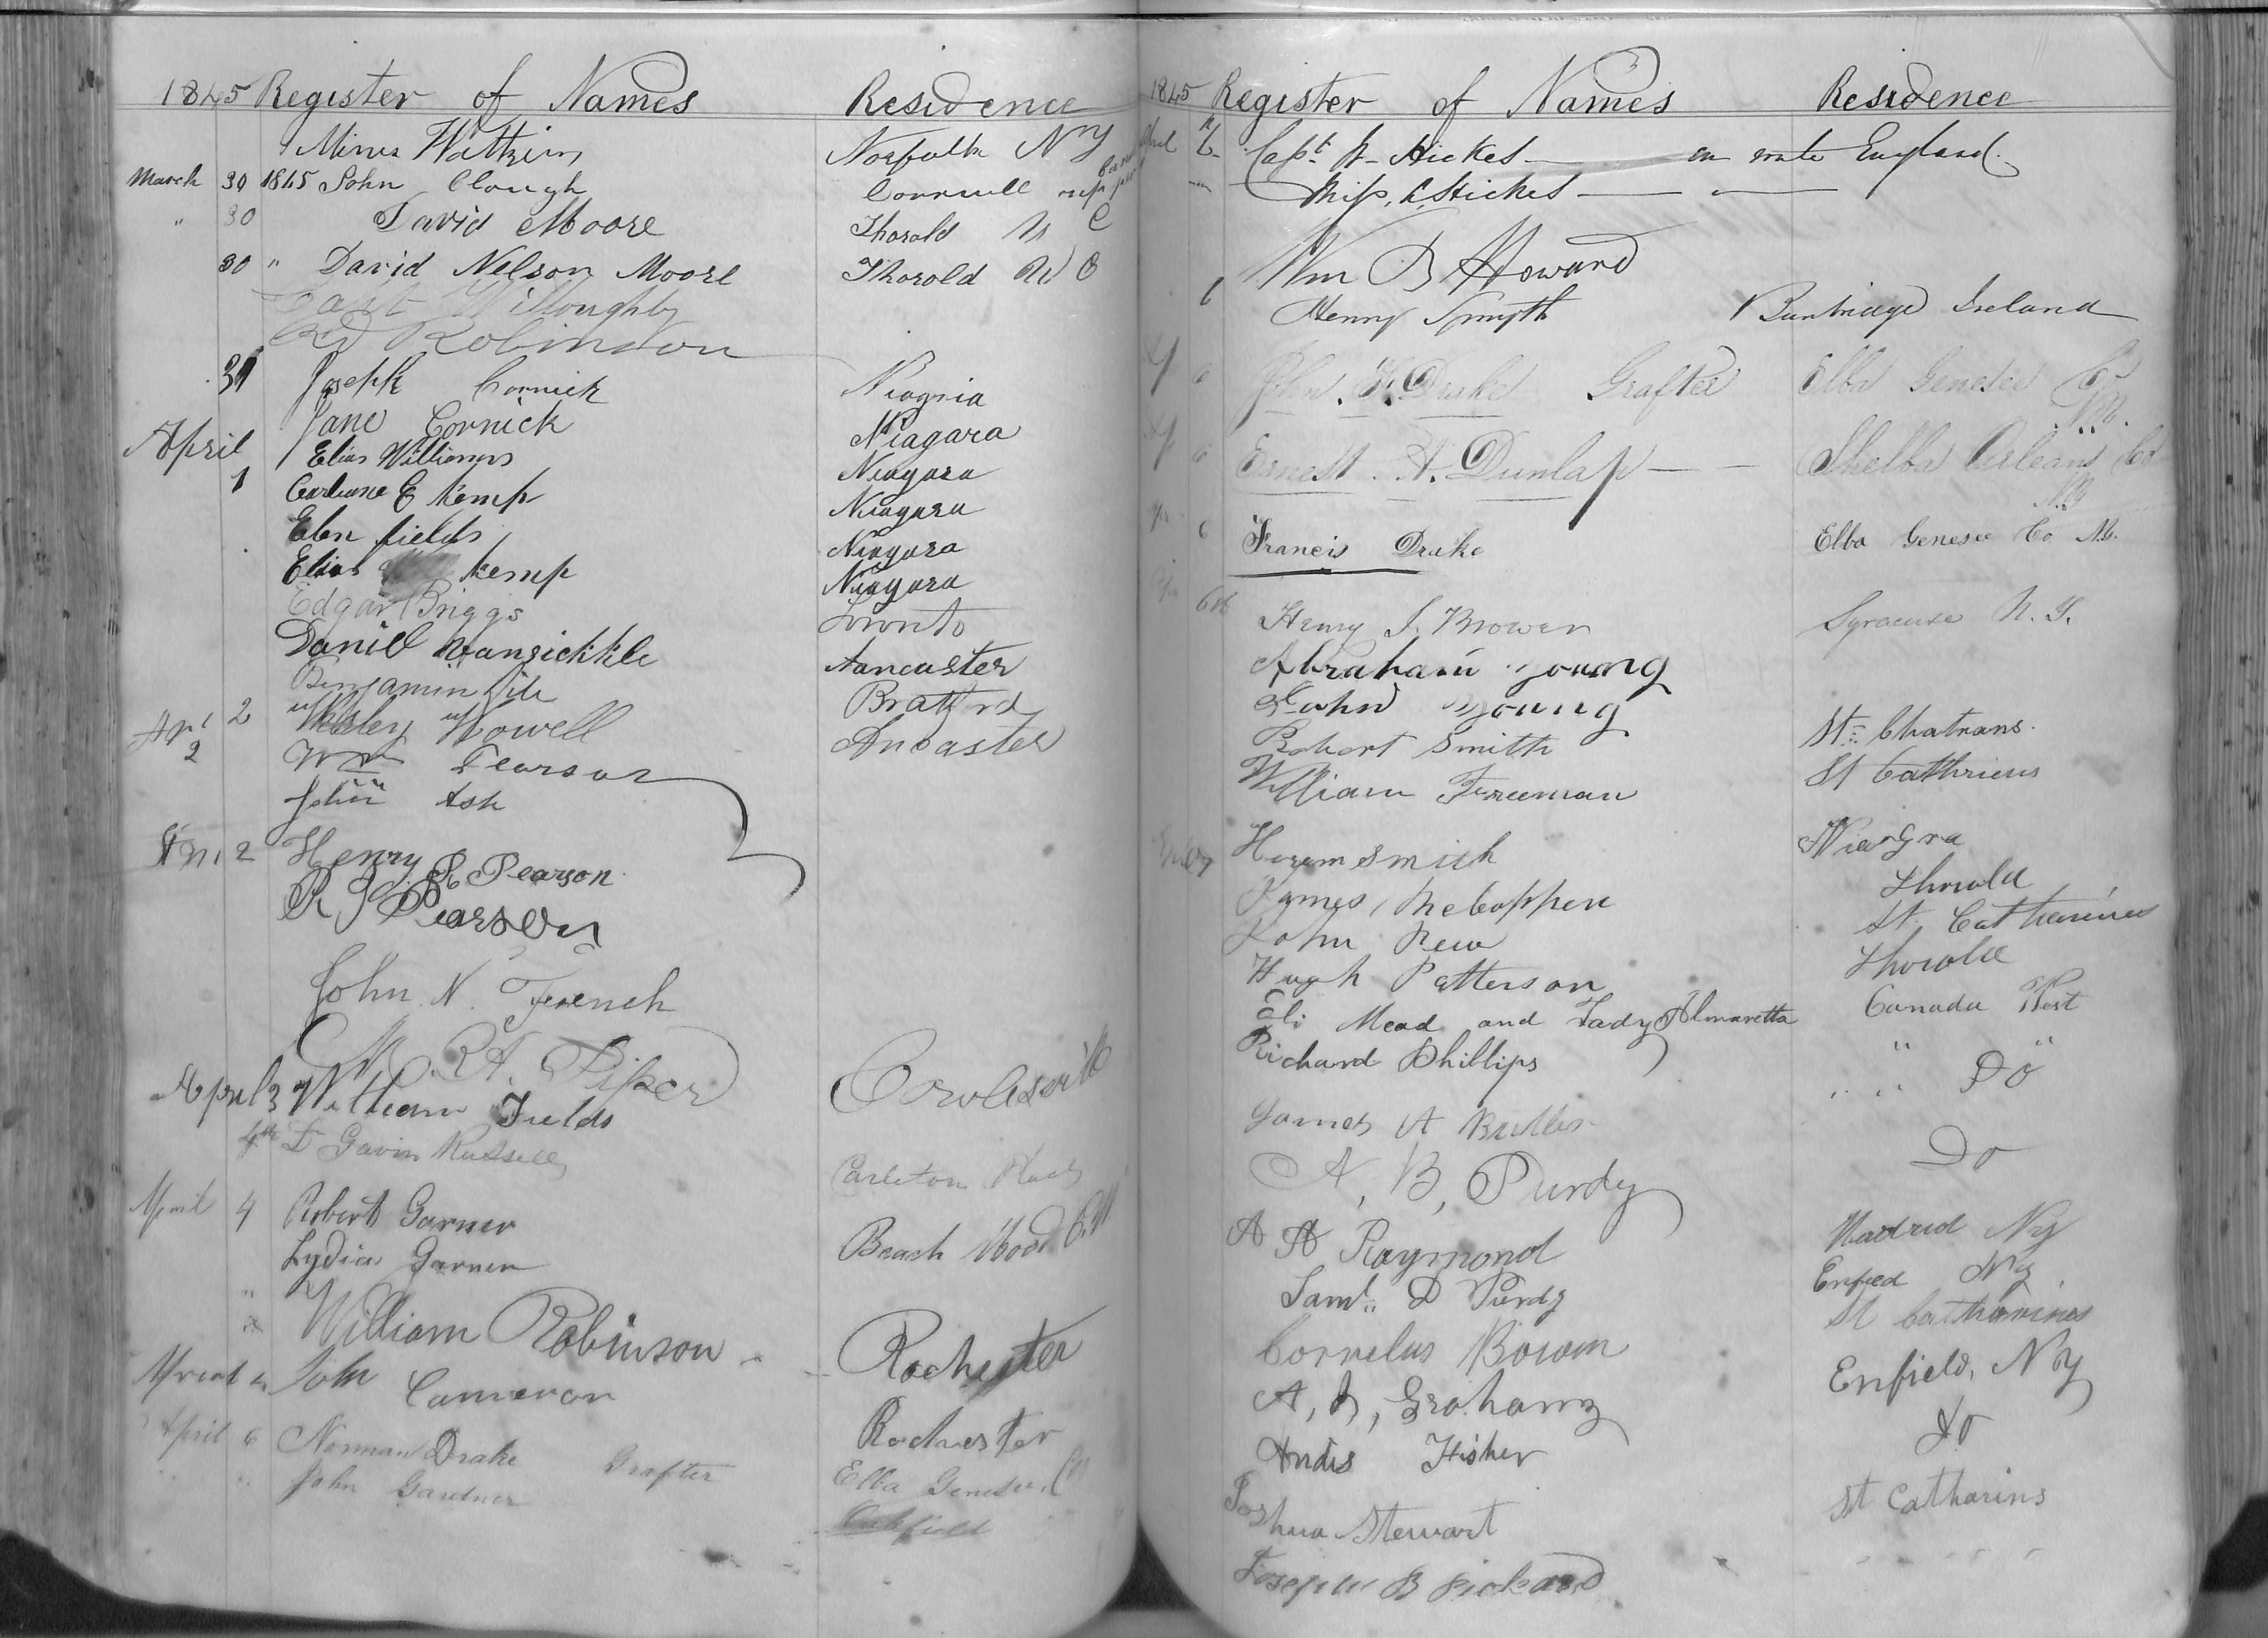 1845 Register of Names Residence
Miner Watkins Norfolk NY
March 30 1845 John Clough Cornwall
" 30 David Moore Thorold U C
30 " David Nelson Moore Thorold
Capt Willoughby
Robinson
31 Joseph Cornick Niagria
Jane Cornick Niagara
April Elias Williams Niagara
1 E Kemp Niagara
Eben fields Niagara
Elias Kemp Niagara
Edgar Briggs Toronto
Daniel Vansickkle Aancaster
Benjamin
2 Wesley Howell Ancaster
Apl 2 Wm Pearson
John Ash
2 Henry R. Pearson
R J Pearson
John N. French
R A. Piper
April 3 William Fields
4th Dr Gavin Russell Carleton Place
April 4 Robert Garner
Lydia Garner
" William Robinson Rochester
John Cameron Rochester
April 6 Norman Drake Grafter Elba Genesee Co
" " John Gardner Oakfield
1845 Register of Names Residence
Capt Hickes en route England
Miss Hickes
Wm B Howard
6 Henry Smyth Banbridge Ireland
6 John H. Drake Grafter Elba Genesee Co
N.Y.
6 Ernest A. Dunlap Shelba Orleans Co
N.Y.
6 Francis Drake Elba Genesee Co N.Y.
6th Henry J. Brower Syracuse N.Y.
Abraham young
John young
Robert Smith St Chatrans
William Freeman St Cathriens
Hiram Smith Niargra
James Thorold
John New St. Catharines
Hugh Patterson Thorold
Eli Mead and Lady Almaretta Canada West
Richard Phillips " Do
James A Do
A, B, Purdy
A A Raymond Madrid NY
Saml. D Purdy Enfied NY
Cornelus Bowen St Catharines
A, J, Graham Enfield, NY
Andis Fisher do
Joshua Stewart St Catharins
Joseph B Pickard